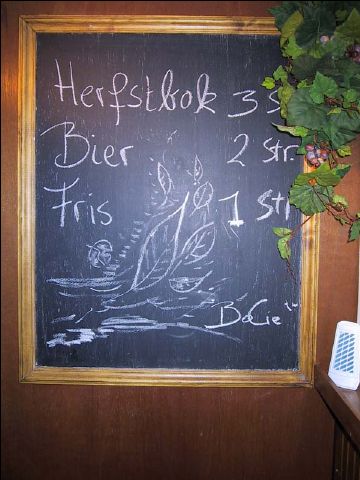 Herfstbok 3 s
Bier 2 str.
Fris 1 str
BoCie